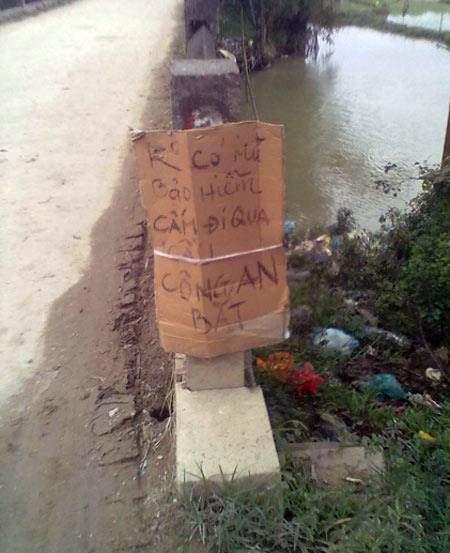 Ko CÓ MŨ
BẢO HIỂM
CẤM ĐI QUA
CẦU
CÔNG AN
BẮT